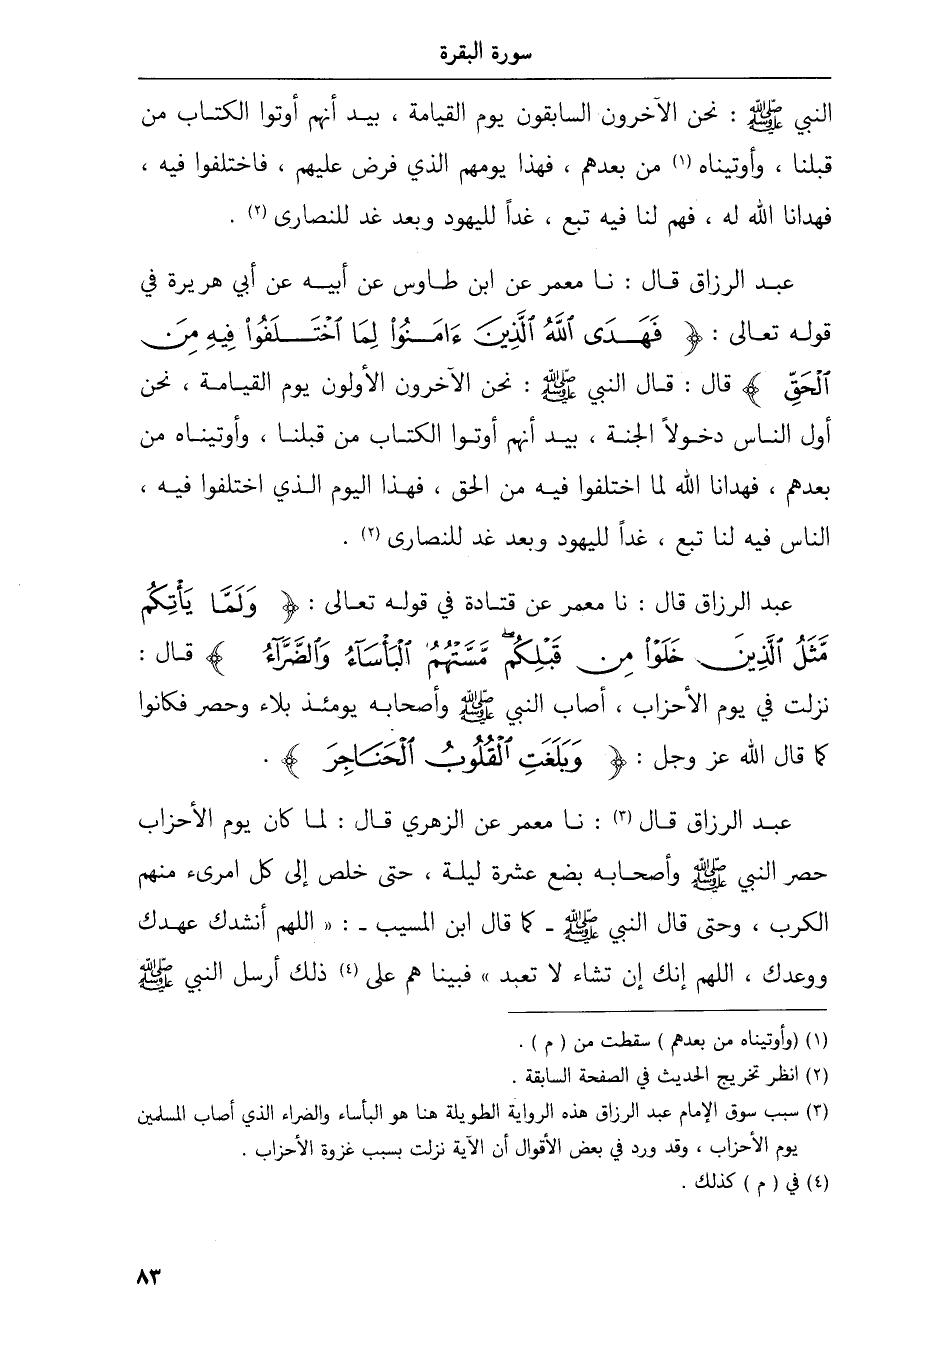 سورة البقرة
النبي ﷺ : نحن الآخرون السابقون يوم القيامة ، بيد أنهم أوتوا الكتاب من
قبلنا ، وأوتيناه (١) من بعدهم ، فهذا يومهم الذي فرض عليهم ، فاختلفوا فيه ،
فهدانا الله له ، فهم لنا فيه تبع ، غداً لليهود وبعد غد للنصارى (٢) .
عبد الرزاق قال : نا معمر عن ابن طاوس عن أبيه عن أبي هريرة في
قوله تعالى : ﴿ فَهَدَى ٱللَّهُ ٱلَّذِينَ ءَامَنُوا۟ لِمَا ٱخْتَلَفُوا۟ فِيهِ مِنَ
ٱلْحَقِّ ﴾ قال : قال النبي ﷺ : نحن الآخرون الأولون يوم القيامة ، نحن
أول الناس دخولاً الجنة ، بيد أنهم أوتوا الكتاب من قبلنا ، وأوتيناه من
بعدهم ، فهدانا الله لما اختلفوا فيه من الحق ، فهذا اليوم الذي اختلفوا فيه ،
الناس فيه لنا تبع ، غداً لليهود وبعد غد للنصارى (٢) .
عبد الرزاق قال : نا معمر عن قتادة في قوله تعالى : ﴿ وَلَمَّا يَأْتِكُم
مَّثَلُ ٱلَّذِينَ خَلَوْا۟ مِن قَبْلِكُم ۖ مَّسَّتْهُمُ ٱلْبَأْسَآءُ وَٱلضَّرَّآءُ ﴾ قال :
نزلت في يوم الأحزاب ، أصاب النبي ﷺ وأصحابه يومئذ بلاء وحصر فكانوا
كما قال الله عز وجل : ﴿ وَبَلَغَتِ ٱلْقُلُوبُ ٱلْحَنَاجِرَ ﴾ .
عبد الرزاق قال (٣) : نا معمر عن الزهري قال : لما كان يوم الأحزاب
حصر النبي ﷺ وأصحابه بضع عشرة ليلة ، حتى خلص إلى كل امرىء منهم
الكرب ، وحتى قال النبي ﷺ ـ كما قال ابن المسيب ـ : « اللهم أنشدك عهدك
ووعدك ، اللهم إنك إن تشاء لا تعبد » فبينا هم على (٤) ذلك أرسل النبي ﷺ
(١) (وأوتيناه من بعدهم ) سقطت من ( م ) .
(٢) انظر تخريج الحديث في الصفحة السابقة .
(٣) سبب سوق الإمام عبد الرزاق هذه الرواية الطويلة هنا هو البأساء والضراء الذي أصاب المسلمين
يوم الأحزاب ، وقد ورد في بعض الأقوال أن الآية نزلت بسبب غزوة الأحزاب .
(٤) في ( م ) كذلك .
٨٣